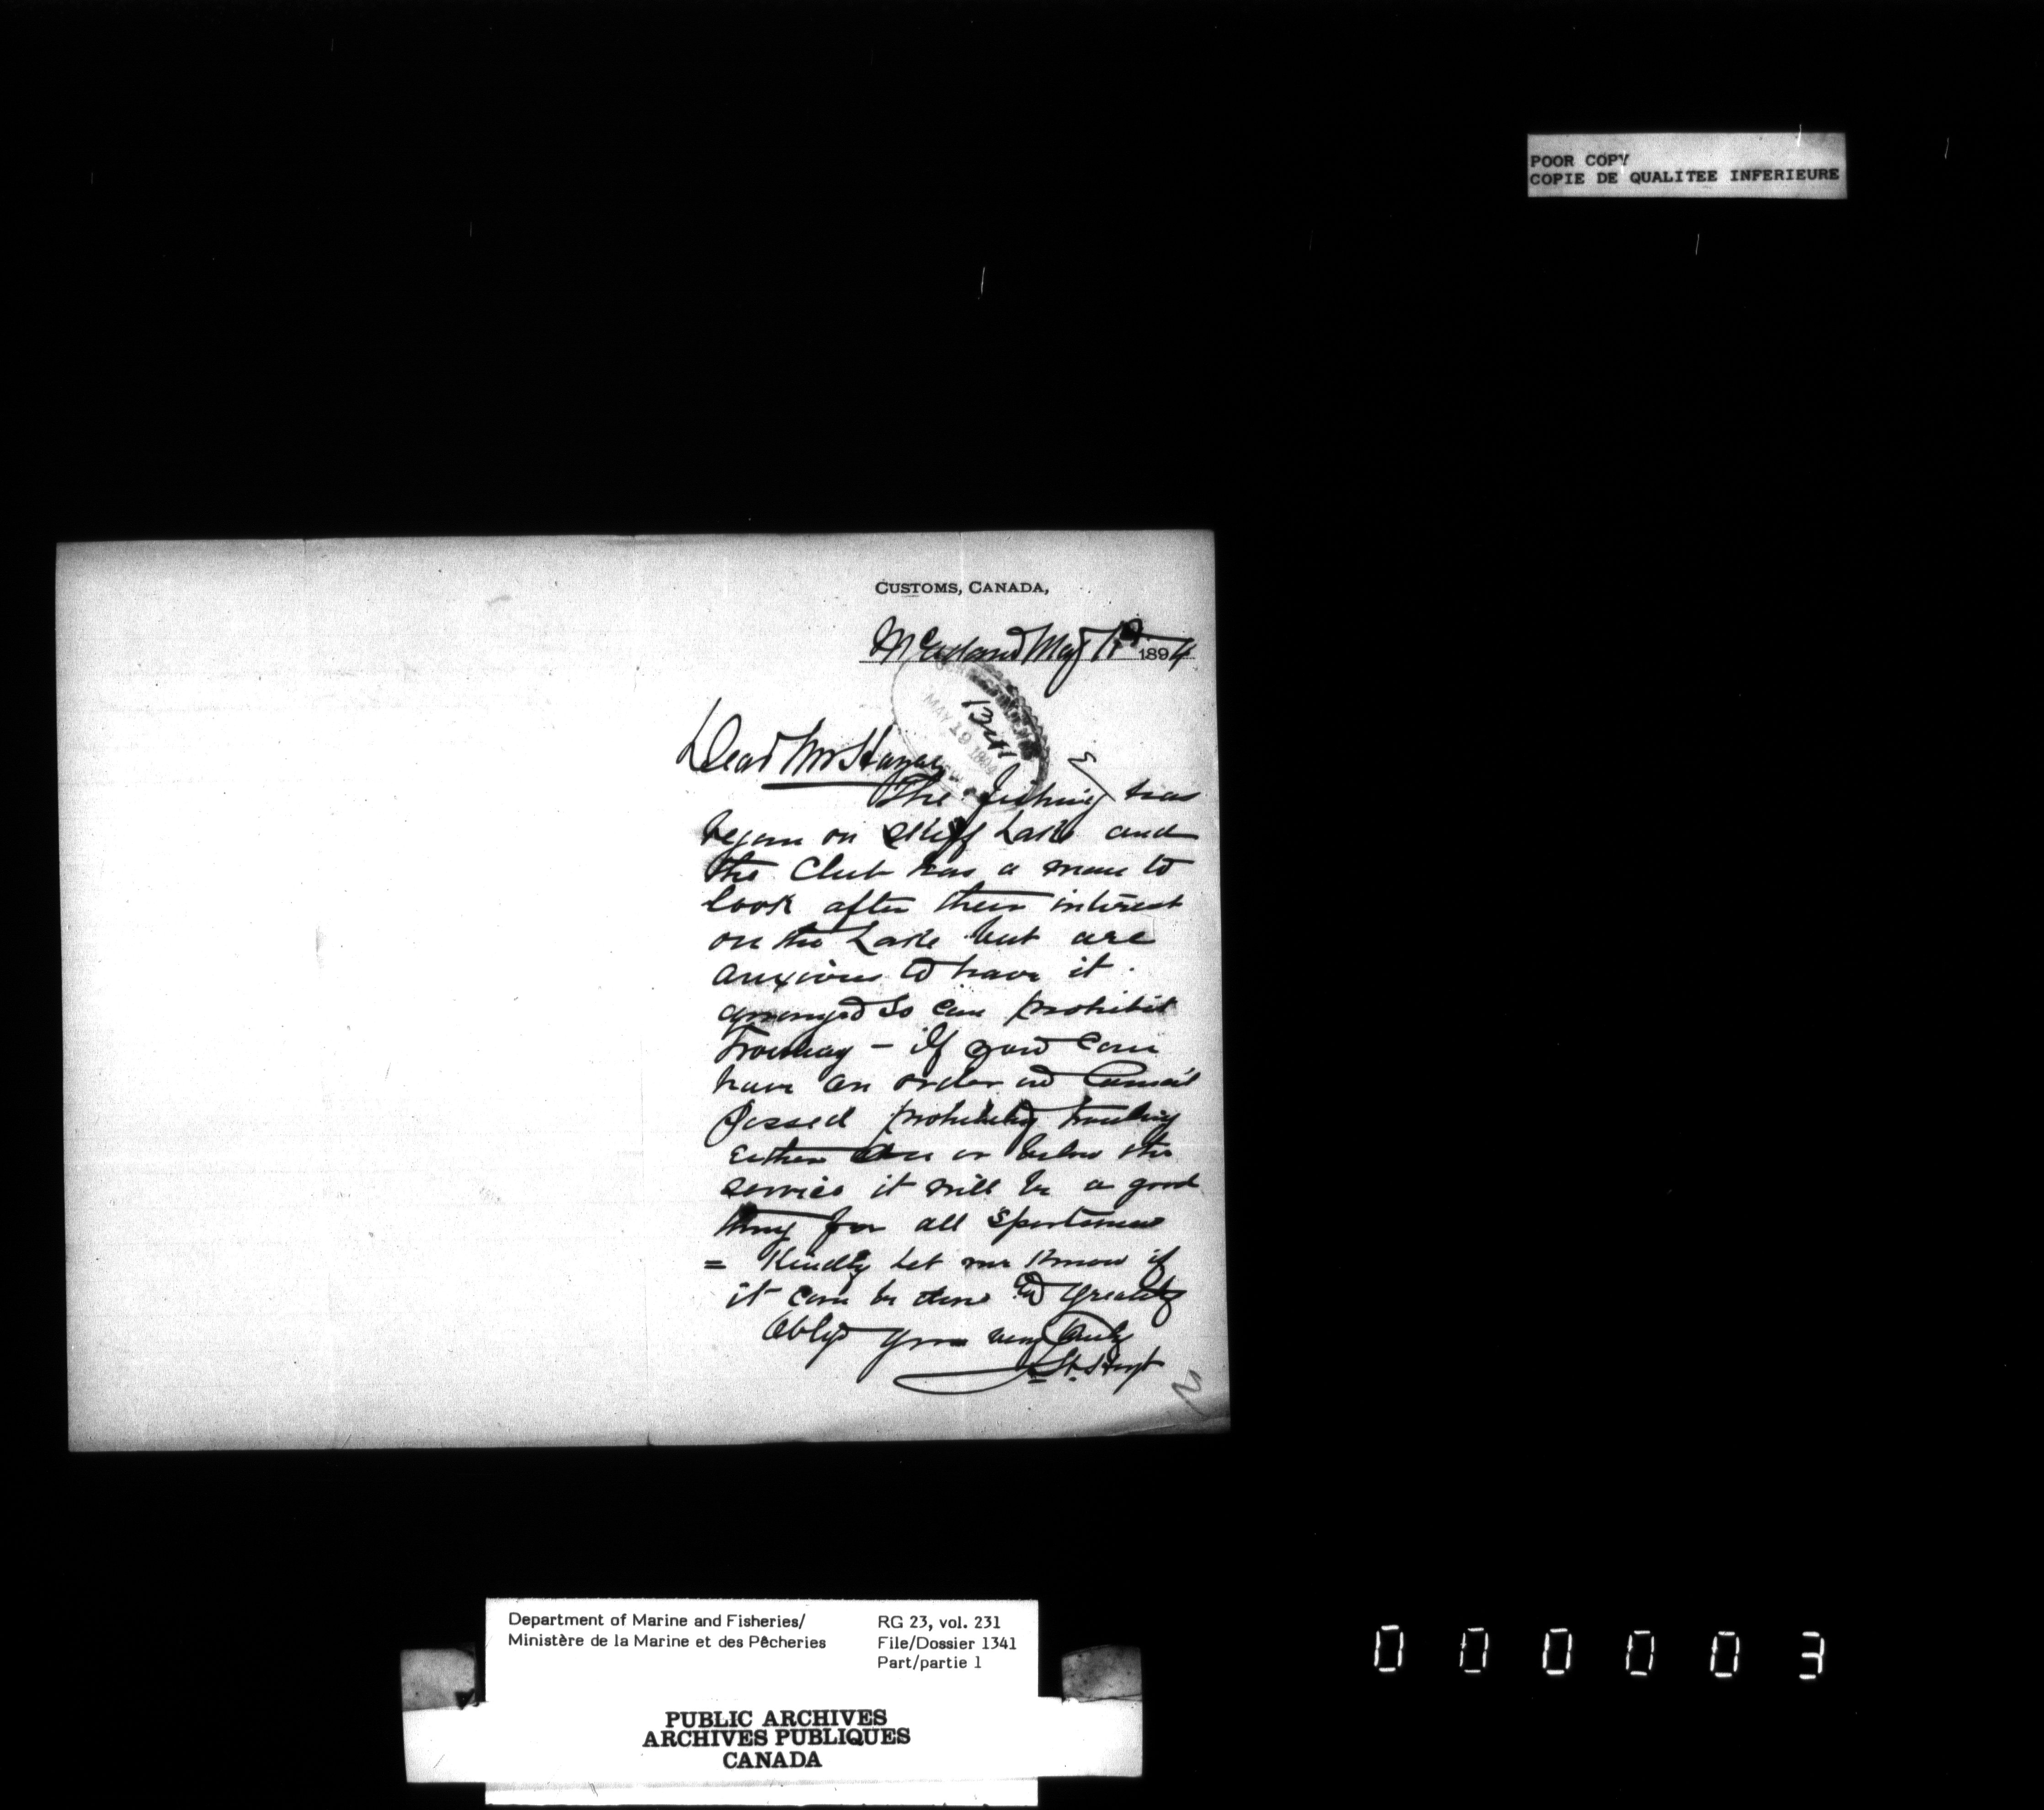 POOR COPY
COPIE DE QUALITEE INFERIEURE
CUSTOMS, CANADA,
McAdam May 1894
MAY 19 1894
1341
Dear Mr
The fishing has
began on Skiff Lake and
the Club has a man to
look after their interest
on the Lake but are
anxious to have it
arranged so can prohibit
Trowling – If you can
have an order in Council
passed prohibiting trowling
either on or below the
service it will be a good
thing for all Sportsmen
= Kindly let me know if
it can be done and greatly
Oblige yours very truly
Department of Marine and Fisheries/
Ministère de la Marine et des Pêcheries
RG 23, vol. 231
File/Dossier 1341
Part/partie 1
PUBLIC ARCHIVES
ARCHIVES PUBLIQUES
CANADA
0 0 0 0 0 3